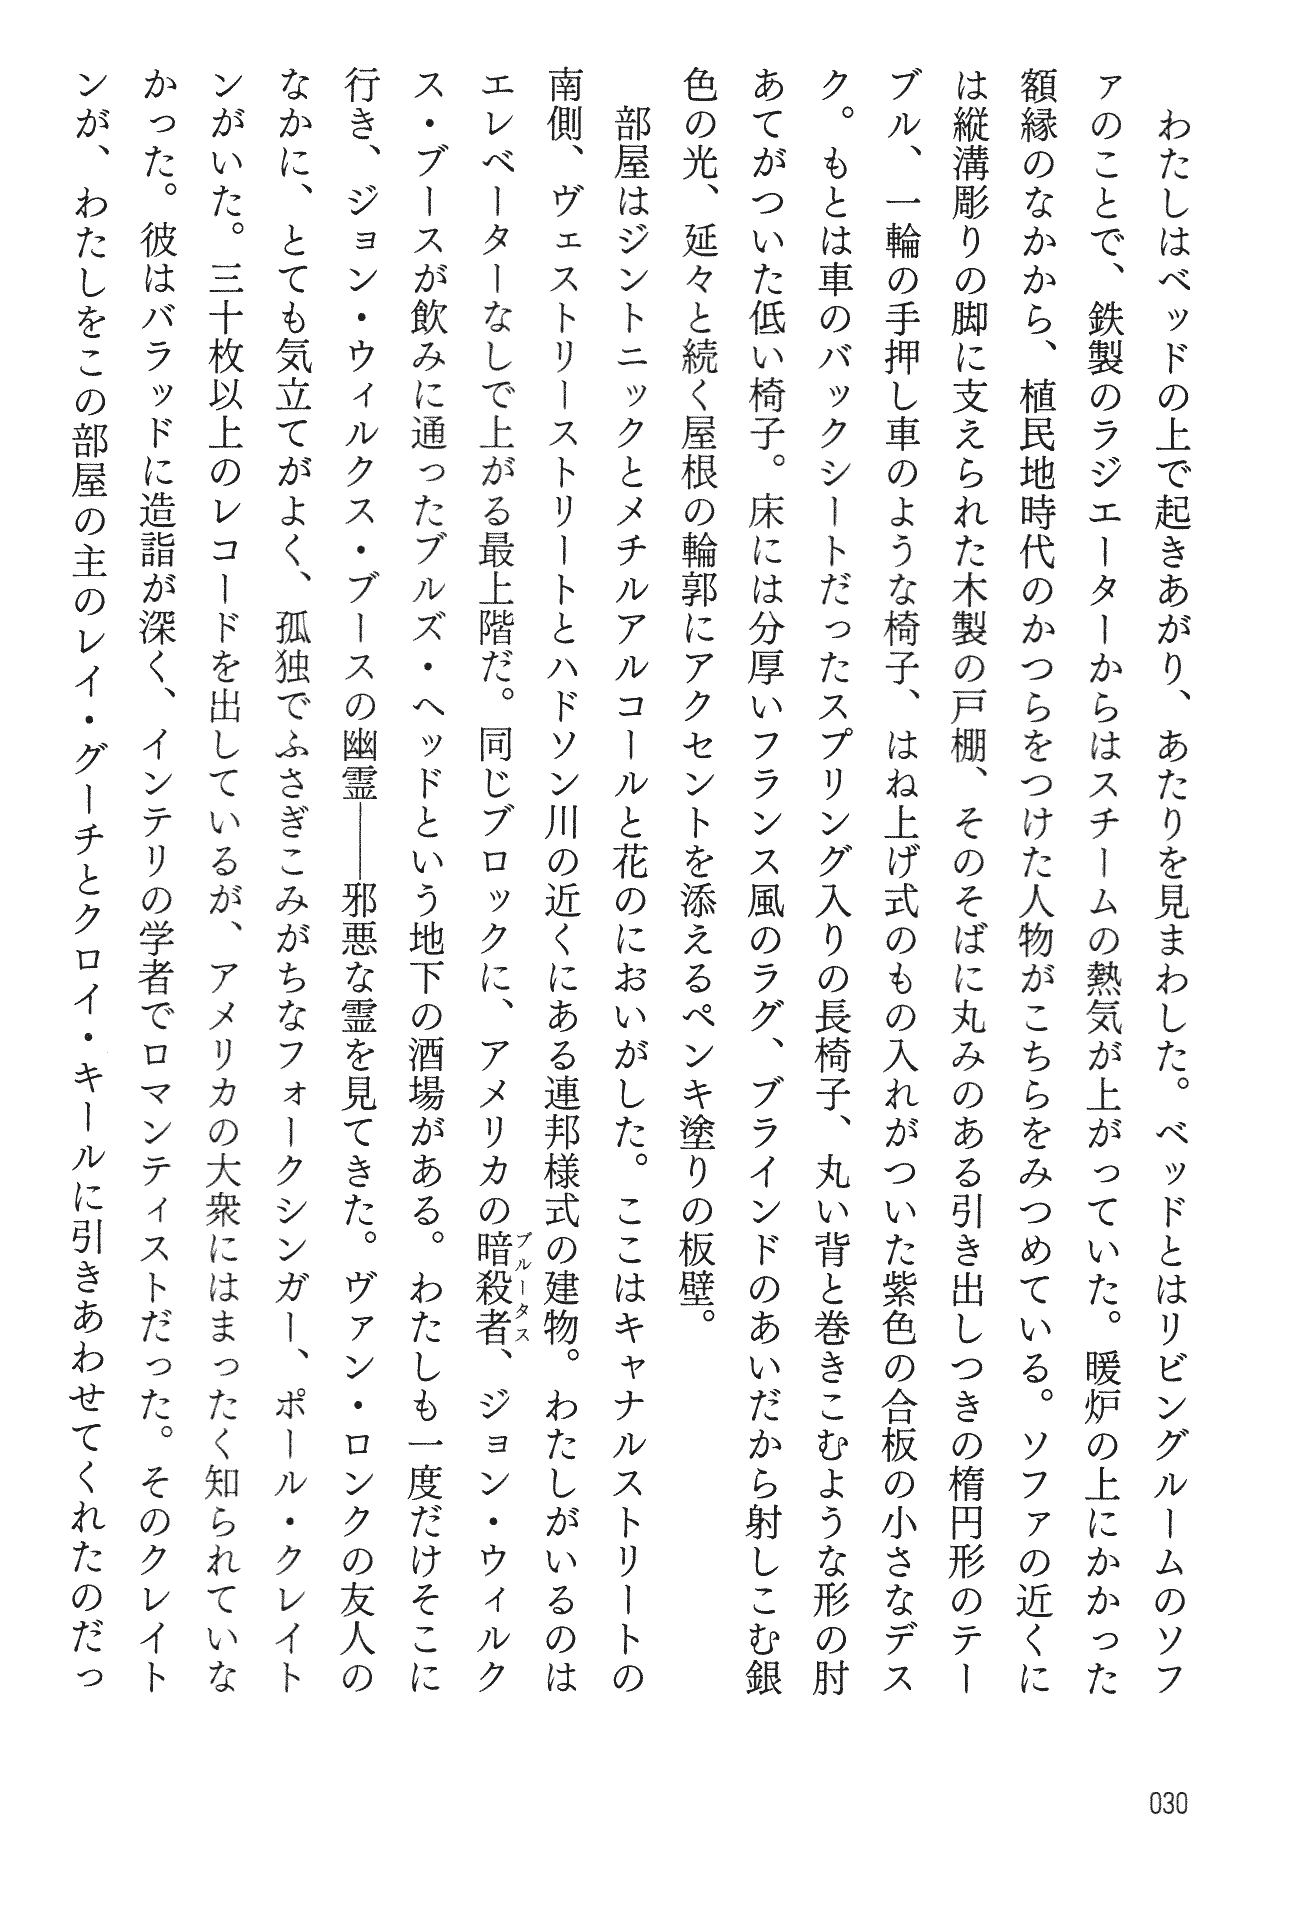 わたしはベッドの上で起きあがり、あたりを見まわした。ベッドとはリビングルームのソフ
ァのことで、鉄製のラジエーターからはスチームの熱気が上がっていた。暖炉の上にかかった
額縁のなかから、植民地時代のかつらをつけた人物がこちらをみつめている。ソファの近くに
は縦溝彫りの脚に支えられた木製の戸棚、そのそばに丸みのある引き出しつきの楕円形のテー
ブル、一輪の手押し車のような椅子、はね上げ式のもの入れがついた紫色の合板の小さなデス
ク。もとは車のバックシートだったスプリング入りの長椅子、丸い背と巻きこむような形の肘
あてがついた低い椅子。床には分厚いフランス風のラグ、ブラインドのあいだから射しこむ銀
色の光、延々と続く屋根の輪郭にアクセントを添えるペンキ塗りの板壁。
部屋はジントニックとメチルアルコールと花のにおいがした。ここはキャナルストリートの
南側、ヴェストリーストリートとハドソン川の近くにある連邦様式の建物。わたしがいるのは
エレベーターなしで上がる最上階だ。同じブロックに、アメリカの暗殺者、ジョン・ウィルク
ブルータス
ス・ブースが飲みに通ったブルズ・ヘッドという地下の酒場がある。わたしも一度だけそこに
行き、ジョン・ウィルクス・ブースの幽霊――邪悪な霊を見てきた。ヴァン・ロンクの友人の
なかに、とても気立てがよく、孤独でふさぎこみがちなフォークシンガー、ポール・クレイト
ンがいた。三十枚以上のレコードを出しているが、アメリカの大衆にはまったく知られていな
かった。彼はバラッドに造詣が深く、インテリの学者でロマンティストだった。そのクレイト
ンが、わたしをこの部屋の主のレイ・グーチとクロイ・キールに引きあわせてくれたのだっ
030